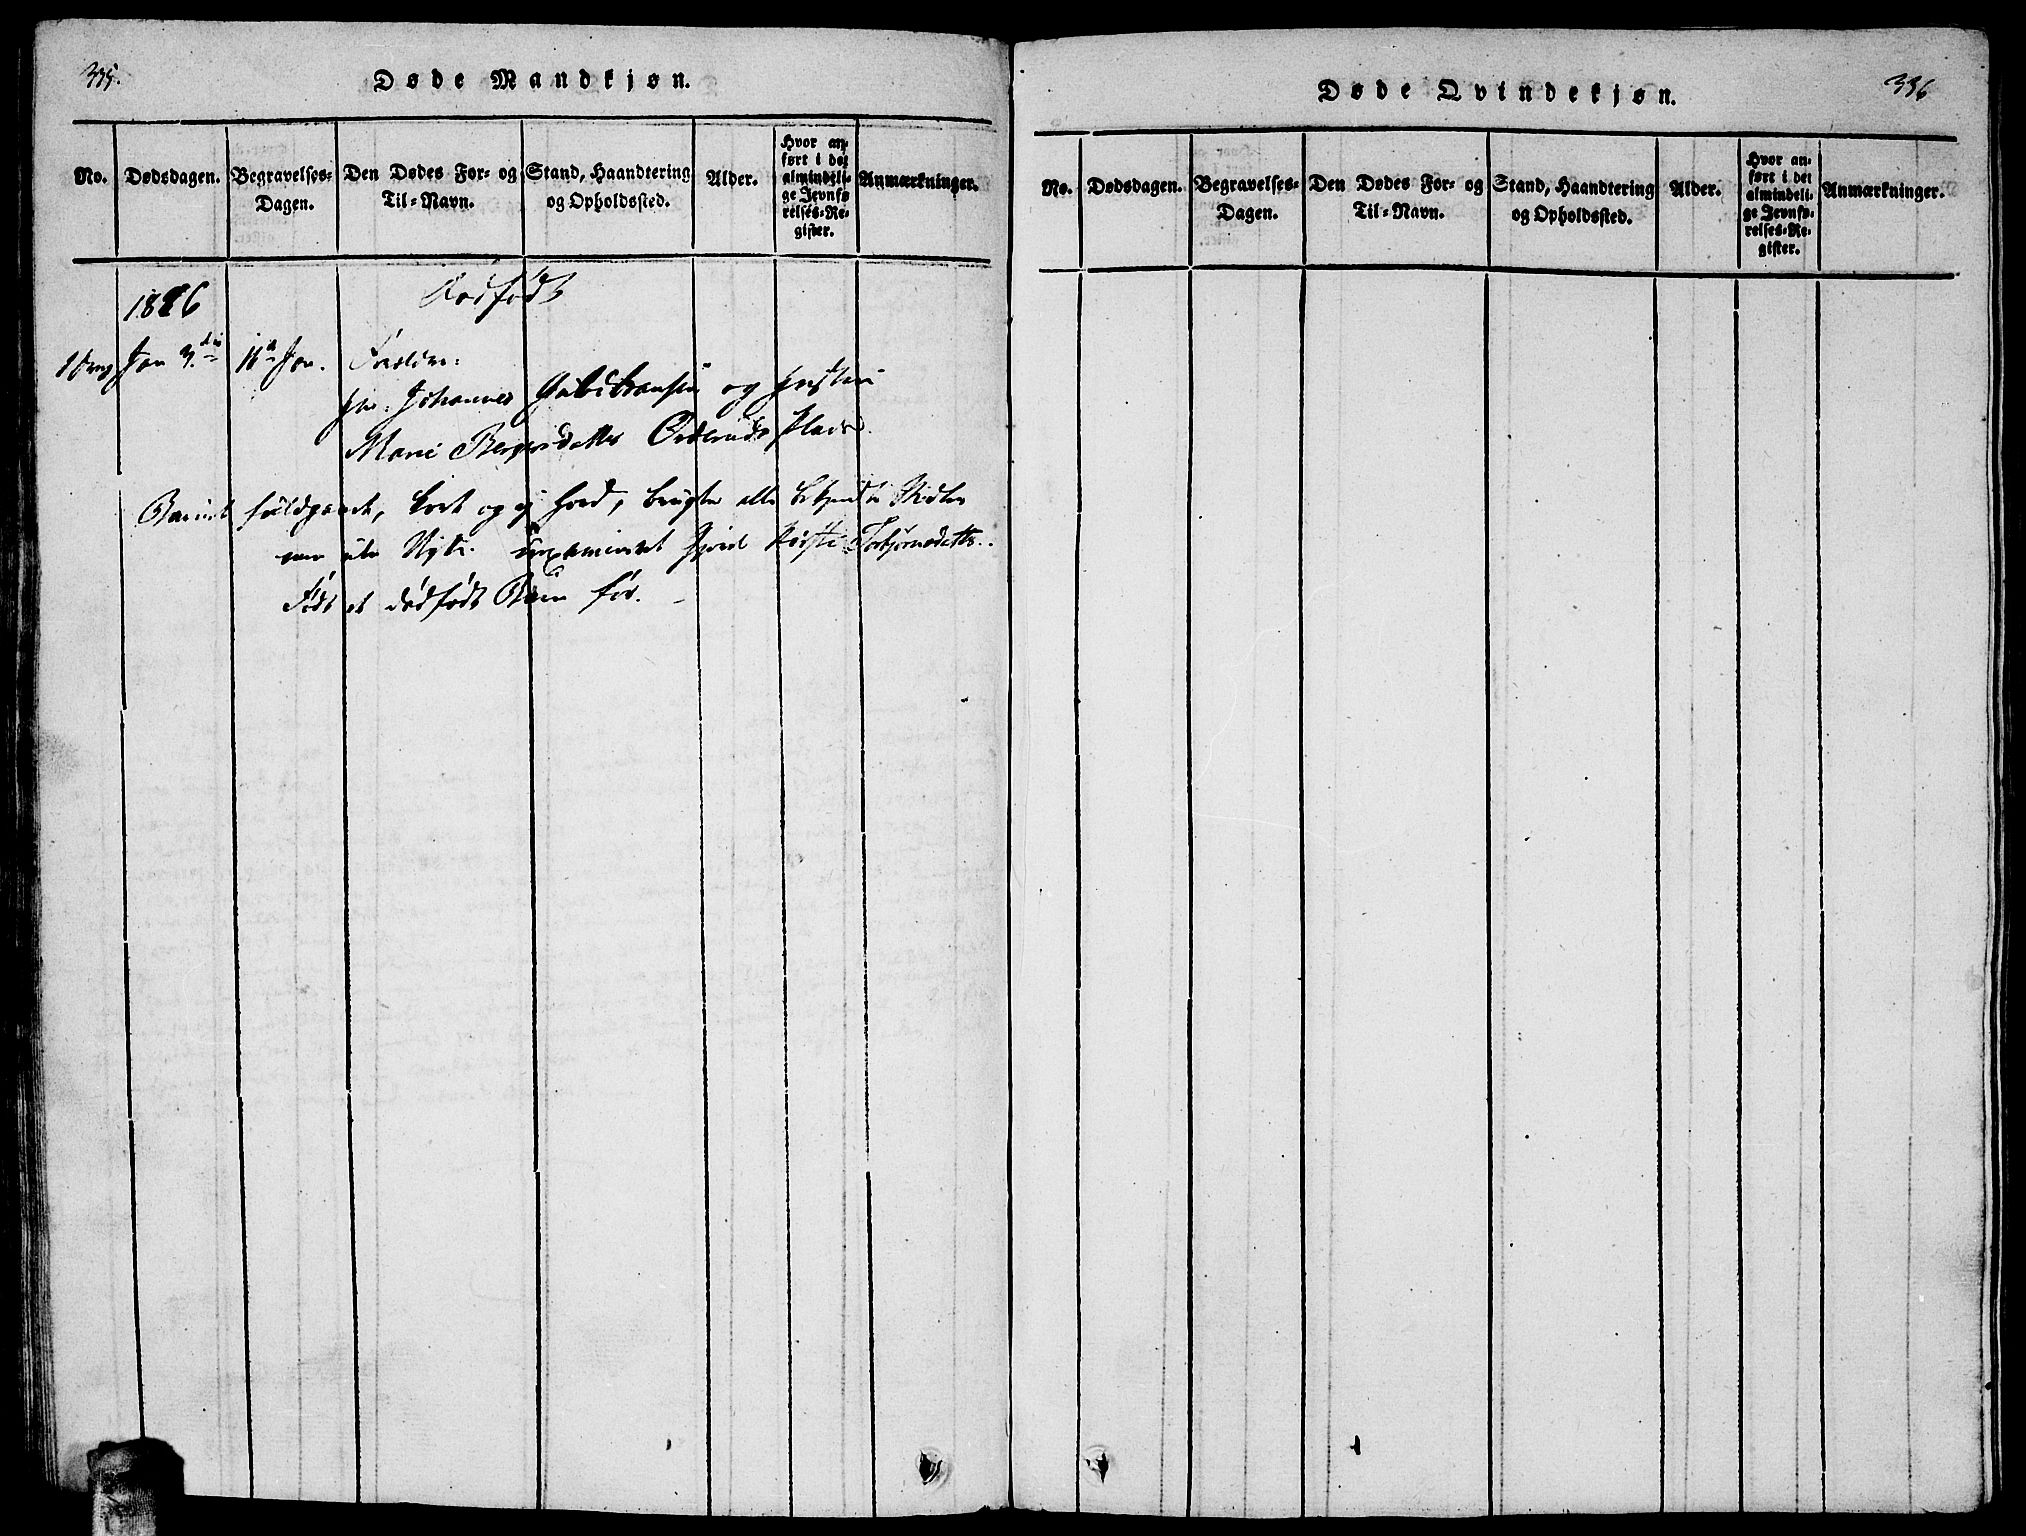 335.
Døde Mandkjøn.
No.
Dødsdagen.
Begravelses-
Dagen.
Den Dødes For- og
Til-Navn.
Stand, Haandtering
og Opholdssted.
Alder.
Hvor an-
ført i det
almindeli-
ge Jevnfø-
relses-Re-
gister.
Anmærkninger.
1826
Dødfødt
1 Dreng Jan 3die 16d Jan. Forældre:
Johannes Guldbransen og
Marie Bergersdatter Oderuds Plads.
Barnet fuldgaaet, kort og ei haard, brugte alle bekjendte Midler
men uden Nytte. Examineret Gjord Kirsti Torbjørnsdatter.
Født et dødfødt Barn før.
Døde Qvindekjøn.
336
No.
Dødsdagen.
Begravelses-
Dagen.
Den Dødes For- og
Til-Navn.
Stand, Haandtering
og Opholdssted.
Alder.
Hvor an-
ført i det
almindeli-
ge Jevnfø-
relses-Re-
gister.
Anmærkninger.